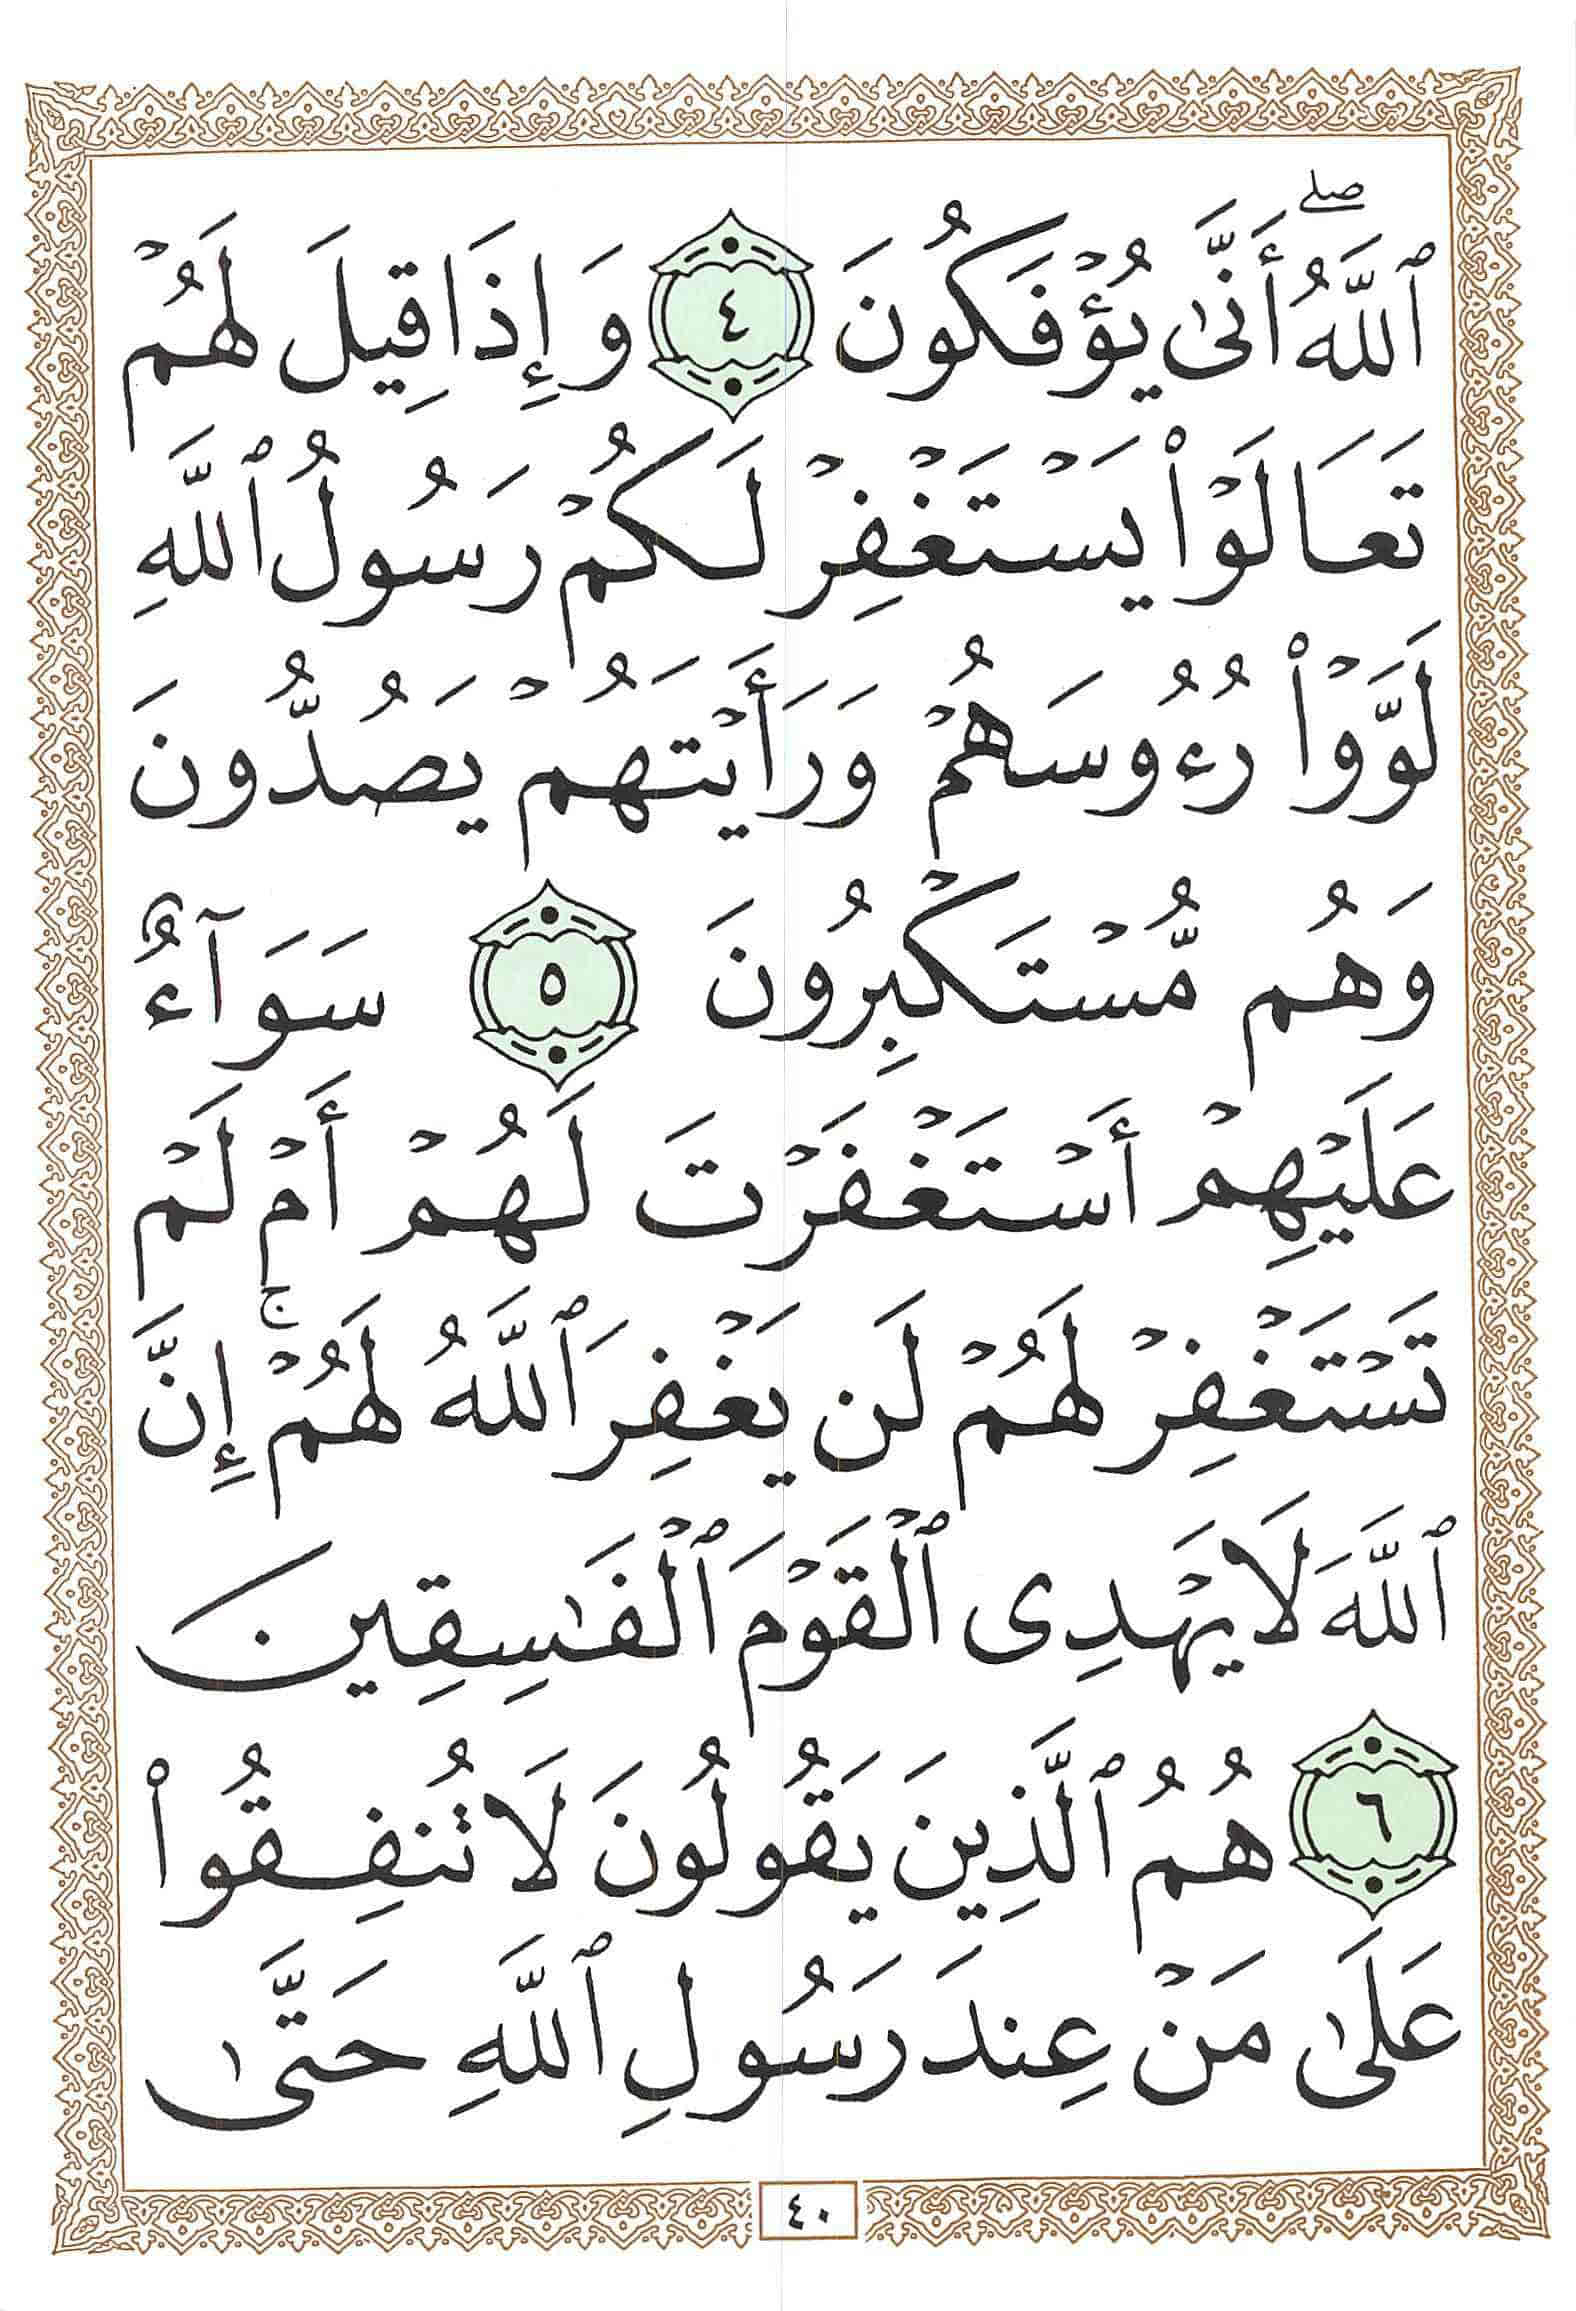 ٱللَّهُ ۖ أَنَّىٰ يُؤْفَكُونَ ٤ وَإِذَا قِيلَ لَهُمْ
تَعَالَوْا۟ يَسْتَغْفِرْ لَكُمْ رَسُولُ ٱللَّهِ
لَوَّوْا۟ رُءُوسَهُمْ وَرَأَيْتَهُمْ يَصُدُّونَ
وَهُم مُّسْتَكْبِرُونَ ٥ سَوَآءٌ
عَلَيْهِمْ أَسْتَغْفَرْتَ لَهُمْ أَمْ لَمْ
تَسْتَغْفِرْ لَهُمْ لَن يَغْفِرَ ٱللَّهُ لَهُمْ ۚ إِنَّ
ٱللَّهَ لَا يَهْدِى ٱلْقَوْمَ ٱلْفَٰسِقِينَ
٦ هُمُ ٱلَّذِينَ يَقُولُونَ لَا تُنفِقُوا۟
عَلَىٰ مَنْ عِندَ رَسُولِ ٱللَّهِ حَتَّىٰ
٤٠